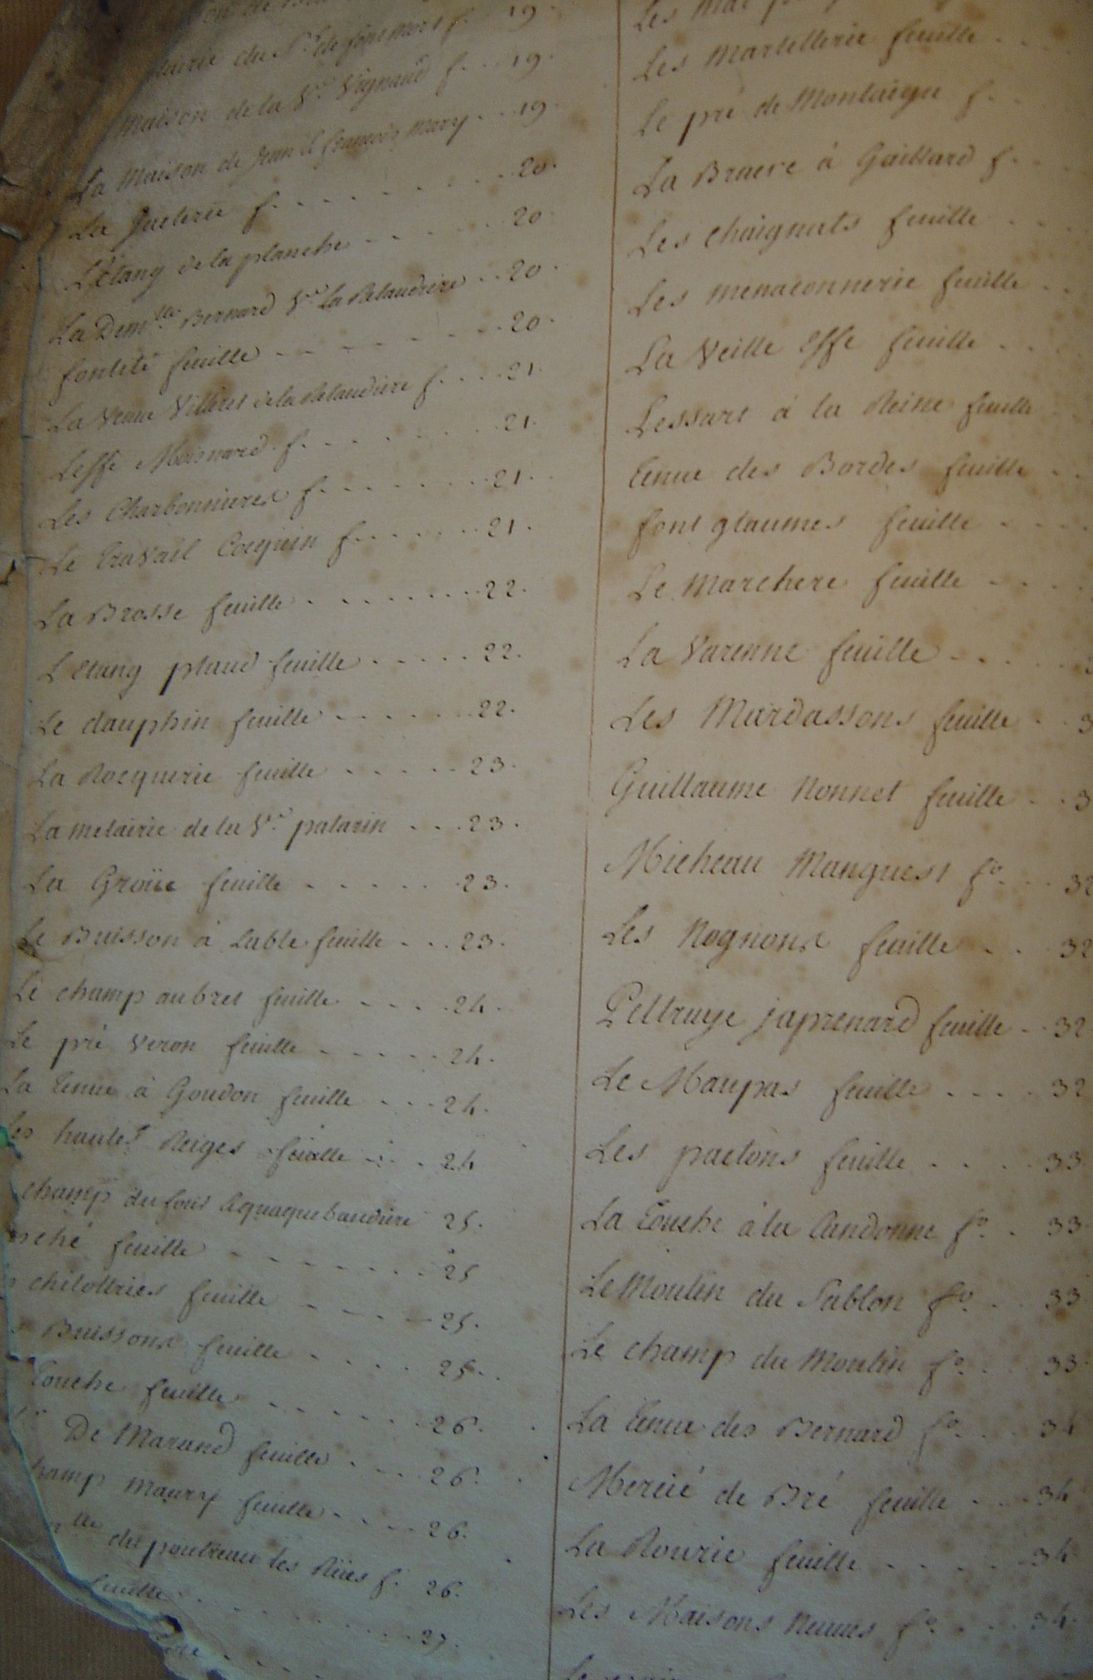 Maison de la V.e Vignaud f. . . 19.
La Maison de Jean et francois Mary . . 19
La f. . . . . . . 20.
L'Etang de la planche . . . . . 20
La Dem.lle Bernard V.e la Relaudiere . . 20.
fontete feuille . . . . . . . 20.
La Veuve Villeret de la Relaudiere f. . . . 21.
Leffe Moinard f. . . . . . . 21.
Les Charbonnieres f. . . . . . . 21.
Le Travail Coquin f. . . . . . 21.
La Brosse feuille . . . . . . . 22.
L'Etang plaud feuille . . . . . 22.
Le dauphin feuille . . . . . . 22.
La Rocquerie feuille . . . . . 23.
La metairie de la V.e patarin . . . 23.
La Groüe feuille . . . . . 23.
Le Buisson à Lable feuille . . . 23.
Le champ aubret feuille . . . . 24.
Le pré Veron feuille . . . . . 24.
La Tenue à Goudon feuille . . . 24.
Les hautes Neiges feuille . . . 24
champ du four 25.
feuille . . . . . . . 25
feuille . . . . 25.
Buissons feuille . . . . 25.
Touche feuille . . . . . . 26.
De Marand feuille . . . . 26.
champ Maury feuille . . . . 26.
du pontreau les f. 26.
feuille . . . . . . . . 27.
Les Martellerie feuille . . . .
Le pré de Montaigu f. .
La Bruere à Gaillard f. .
Les Chaignats feuille . . .
Les menaconnerie feuille . .
La Veille Effe feuille . . .
Lessart à la Reine feuille
Tenue des Bordes feuille . .
font glaumes feuille . . . .
Le Marchere feuille . . . .
La Varenne feuille . . . .
Les Mardassons feuille . . 3
Guillaume Nonnet feuille . . 3
Micheau Manguest f.o . . 32
Les Rognons feuille . . 32
Peltruye japrenard feuille . . 32
Le Maupas feuille . . . . 32
Les pactons feuille . . . . 33
La Touche à la Candonne f.o . 33
Le Moulin du Sablon f.o . . 33
Le champ du Moulin f.o . . 33
La Tenue des Bernard f.o . . 34
Mercié de Bré feuille . . . 34
La Rourie feuille . . . . . 34
Les Maisons Neuves f.o . . . 34.